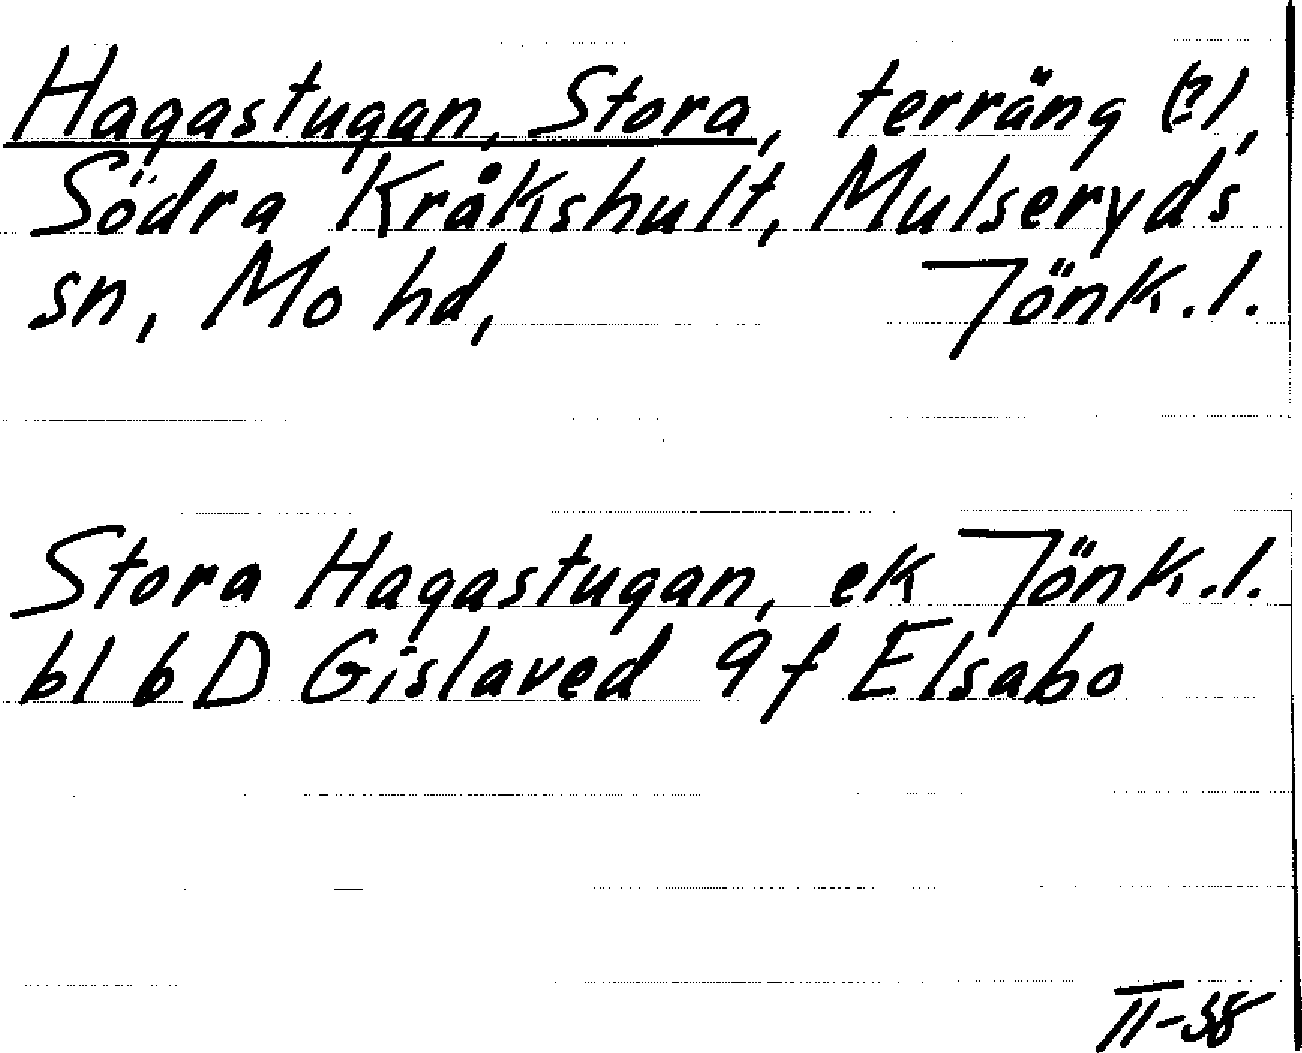 Hagastugan, Stora, terräng (?),
Södra Kråkshult, Mulseryds
sn, Mo hd, Jönk.l.
Stora Hagastugan, ek Jönk.l.
bl 6D Gislaved 9f Elsabo
II-58